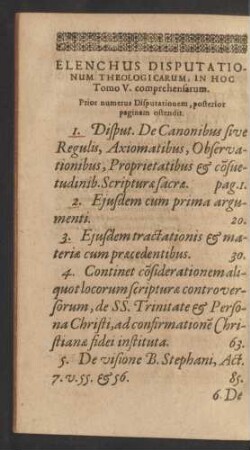 ELENCHUS DISPUTATIO-
NUM THEOLOGICARUM, IN HOC
Tomo V. comprehensarum.
Prior numerus Disputationem, posterior
paginam ostendit.
1. Disput. De Canonibus sive
Regulis, Axiomatibus, Observa-
tionibus, Proprietatibus & cõsue-
tudinib. Scripturæ sacræ. pag. 1.
2. Ejusdem cum prima argu-
menti. 20.
3. Ejusdem tractationis & ma-
teriæ cum præcedentibus. 30.
4. Continet cõsiderationem ali-
quot locorum scripturæ controver-
sorum, de SS. Trinitate & Perso-
na Christi, ad confirmationē Chri-
stianæ fidei instituta. 63.
5. De visione B. Stephani, Act.
7. v. 55. & 56. 85.
6. De